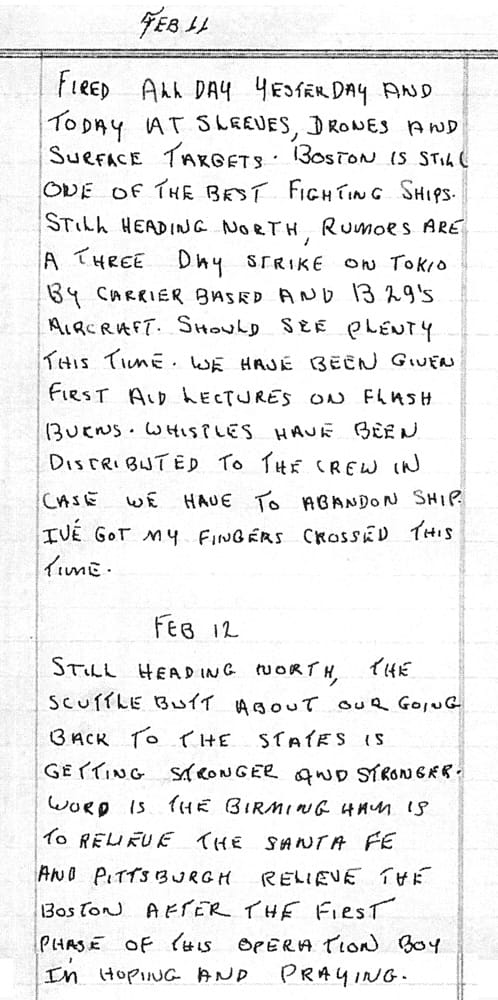 FEB 11
FIRED ALL DAY YESTERDAY AND
TODAY AT SLEEVES, DRONES AND
SURFACE TARGETS. BOSTON IS STILL
ONE OF THE BEST FIGHTING SHIPS.
STILL HEADING NORTH, RUMORS ARE
A THREE DAY STRIKE ON TOKIO
BY CARRIER BASED AND B 29'S
AIRCRAFT. SHOULD SEE PLENTY
THIS TIME. WE HAVE BEEN GIVEN
FIRST AID LECTURES ON FLASH
BURNS. WHISTLES HAVE BEEN
DISTRIBUTED TO THE CREW IN
CASE WE HAVE TO ABANDON SHIP.
I'VE GOT MY FINGERS CROSSED THIS
TIME.
FEB 12
STILL HEADING NORTH, THE
SCUTTLE BUTT ABOUT OUR GOING
BACK TO THE STATES IS
GETTING STRONGER AND STRONGER.
WORD IS THE BIRMING HAM IS
TO RELIEVE THE SANTA FE
AND PITTSBURGH RELIEVE THE
BOSTON AFTER THE FIRST
PHASE OF THIS OPERATION BOY
I'M HOPING AND PRAYING.